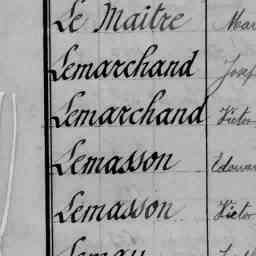 Le Maitre Mar
Lemarchand Josep
Lemarchand Victor
Lemasson Edouar
Lemasson Victor
Lemay